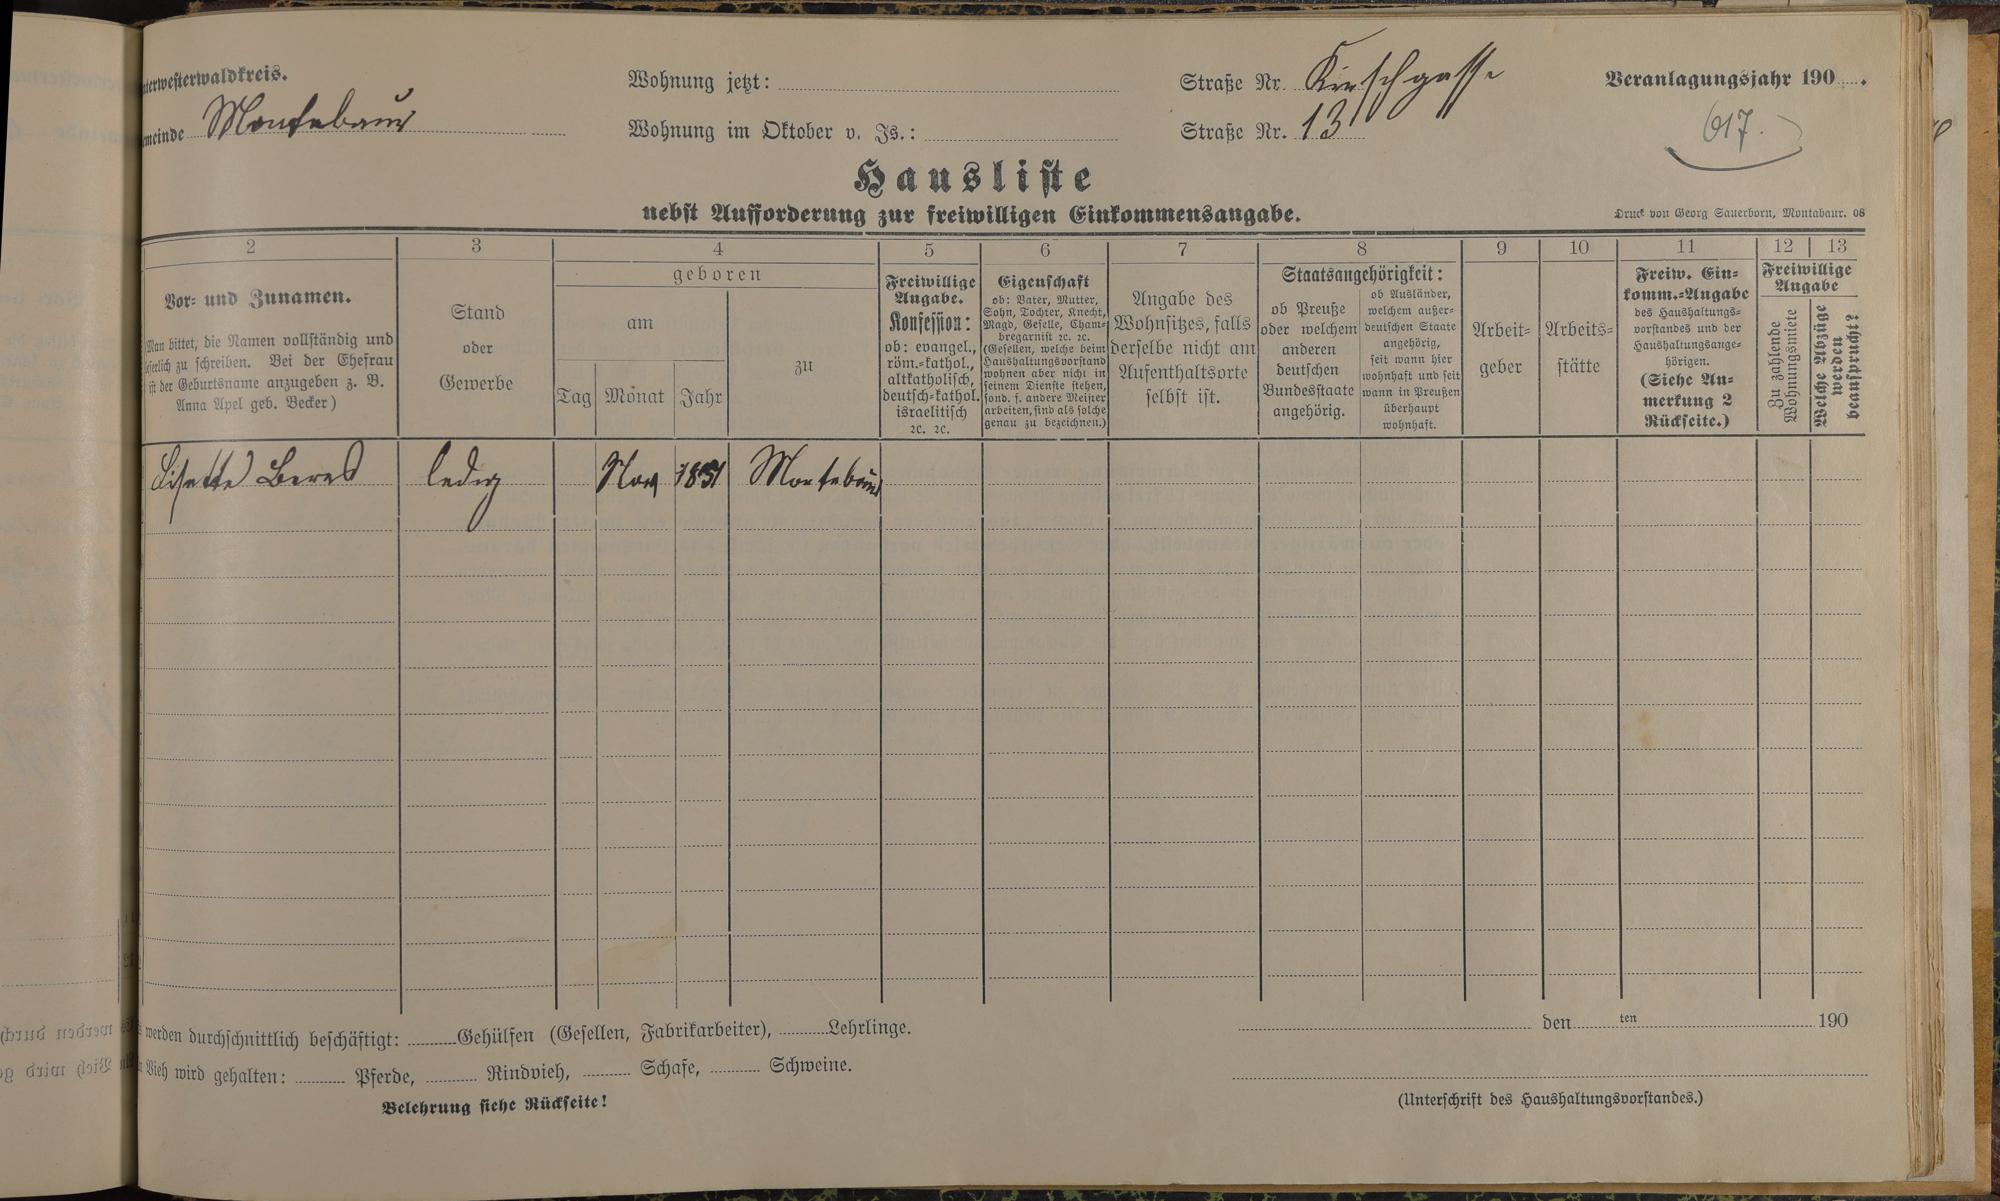 nterwesterwaldkreis.
emeinde Montabaur
Wohnung jetzt:
Wohnung im Oktober v. Js.:
Straße Nr. Kirschgasse
Straße Nr. 13
Veranlagungsjahr 190 .
617.
Hausliste
nebst Aufforderung zur freiwilligen Einkommensangabe.
Druck von Georg Sauerborn, Montabaur. 08
2
3
4
5
6
7
8
9
10
11
12
13
Vor- und Zunamen.
(Man bittet, die Namen vollständig und
leserlich zu schreiben. Bei der Ehefrau
ist der Geburtsname anzugeben z. B.
Anna Apel geb. Becker)
Stand
oder
Gewerbe
geboren
am
Tag
Monat
Jahr
zu
Freiwillige
Angabe.
Konfession:
ob: evangel.,
röm.-kathol.,
altkatholisch,
deutsch-kathol.
israelitisch
ꝛc. ꝛc.
Eigenschaft
ob: Vater, Mutter,
Sohn, Tochter, Knecht,
Magd, Geselle, Cham-
bregarnist ꝛc. ꝛc.
(Gesellen, welche beim
Haushaltungsvorstand
wohnen aber nicht in
seinem Dienste stehen,
sond. f. andere Meister
arbeiten, sind als solche
genau zu bezeichnen.)
Angabe des
Wohnsitzes, falls
derselbe nicht am
Aufenthaltsorte
selbst ist.
Staatsangehörigkeit:
ob Preuße
oder welchem
anderen
deutschen
Bundesstaate
angehörig.
ob Ausländer,
welchem außer-
deutschen Staate
angehörig,
seit wann hier
wohnhaft und seit
wann in Preußen
überhaupt
wohnhaft.
Arbeit-
geber
Arbeits-
stätte
Freiw. Ein-
komm.-Angabe
des Haushaltungs-
vorstandes und der
Haushaltungsange-
hörigen.
(Siehe An-
merkung 2
Rückseite.)
Freiwillige
Angabe
Zu zahlende
Wohnungsmiete
Welche Abzüge
werden
beansprucht?
Lisette Beres
ledig
Nov
1851
Montabaur
werden durchschnittlich beschäftigt: Gehülfen (Gesellen, Fabrikarbeiter), Lehrlinge.
Vieh wird gehalten: Pferde, Rindvieh, Schafe, Schweine.
Belehrung siehe Rückseite!
den ten 190
(Unterschrift des Haushaltungsvorstandes.)